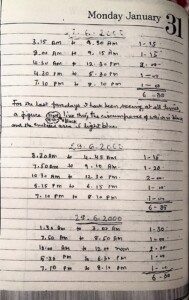 Monday January 31
6.2000
3.15 Am to 4.30 Am 1-15
8.00 Am to 9.15 Am 1-15
to 12.30 Pm 2-00
4.30 Pm to 5.30 Pm 1-00
7.10 Pm to 8.10 Pm 1-00
6-30
For the last few days I have been seeing, at all times,
a figure like this, the circumference of which is black
and the enclosed area is light blue.
29.6.2000
3.20 Am to 4.45 Am
7.50 Am to 9.15 Am
10.30 Am to 12.30 Pm 2-00
5.15 Pm to 6.15 Pm 1-00
7.10 Pm to 8.10 Pm 1-00
28.6.2000
1.30 Am to 3.00 Am 1-30
7.50 Am to 8.50 Am 1-00
10.00 Am to 12.00 noon 2-00
5.30 Pm to 6.30 Pm 1-00
7.10 Pm to 8.10 Pm 1-00
6-30